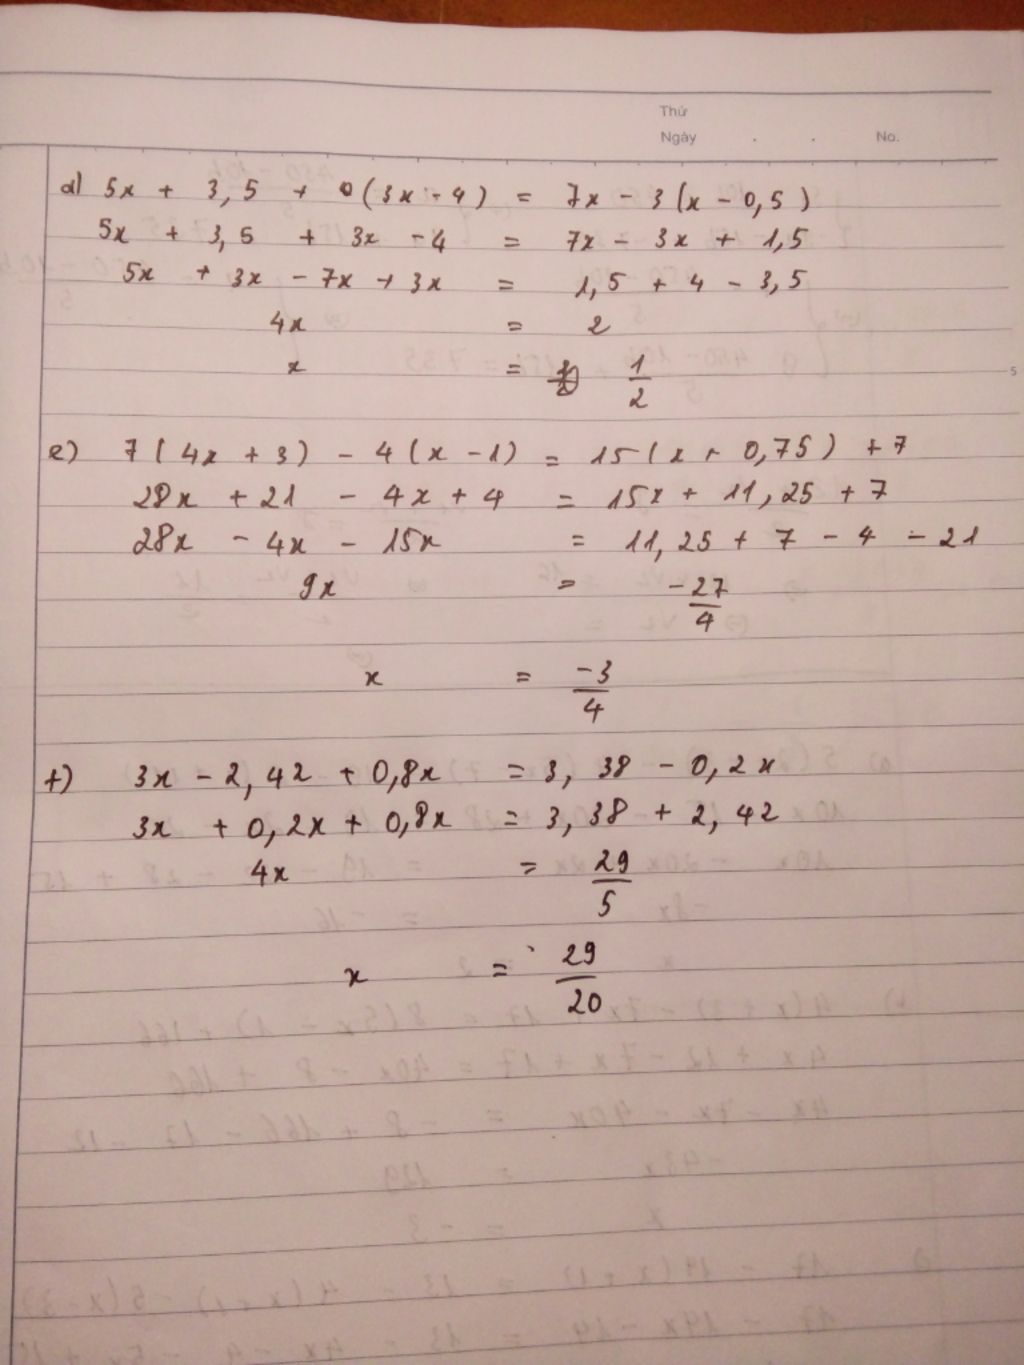 Thứ
Ngày . . No.
d) 5x + 3,5 + (3x - 4) = 7x - 3(x - 0,5)
5x + 3,5 + 3x - 4 = 7x - 3x + 1,5
5x + 3x - 7x + 3x = 1,5 + 4 - 3,5
4x = 2
x = 1/2
5
e) 7(4x + 3) - 4(x - 1) = 15(x + 0,75) + 7
28x + 21 - 4x + 4 = 15x + 11,25 + 7
28x - 4x - 15x = 11,25 + 7 - 4 - 21
9x = -27/4
x = -3/4
f) 3x - 2,42 + 0,8x = 3,38 - 0,2x
3x + 0,2x + 0,8x = 3,38 + 2,42
4x = 29/5
x = 29/20